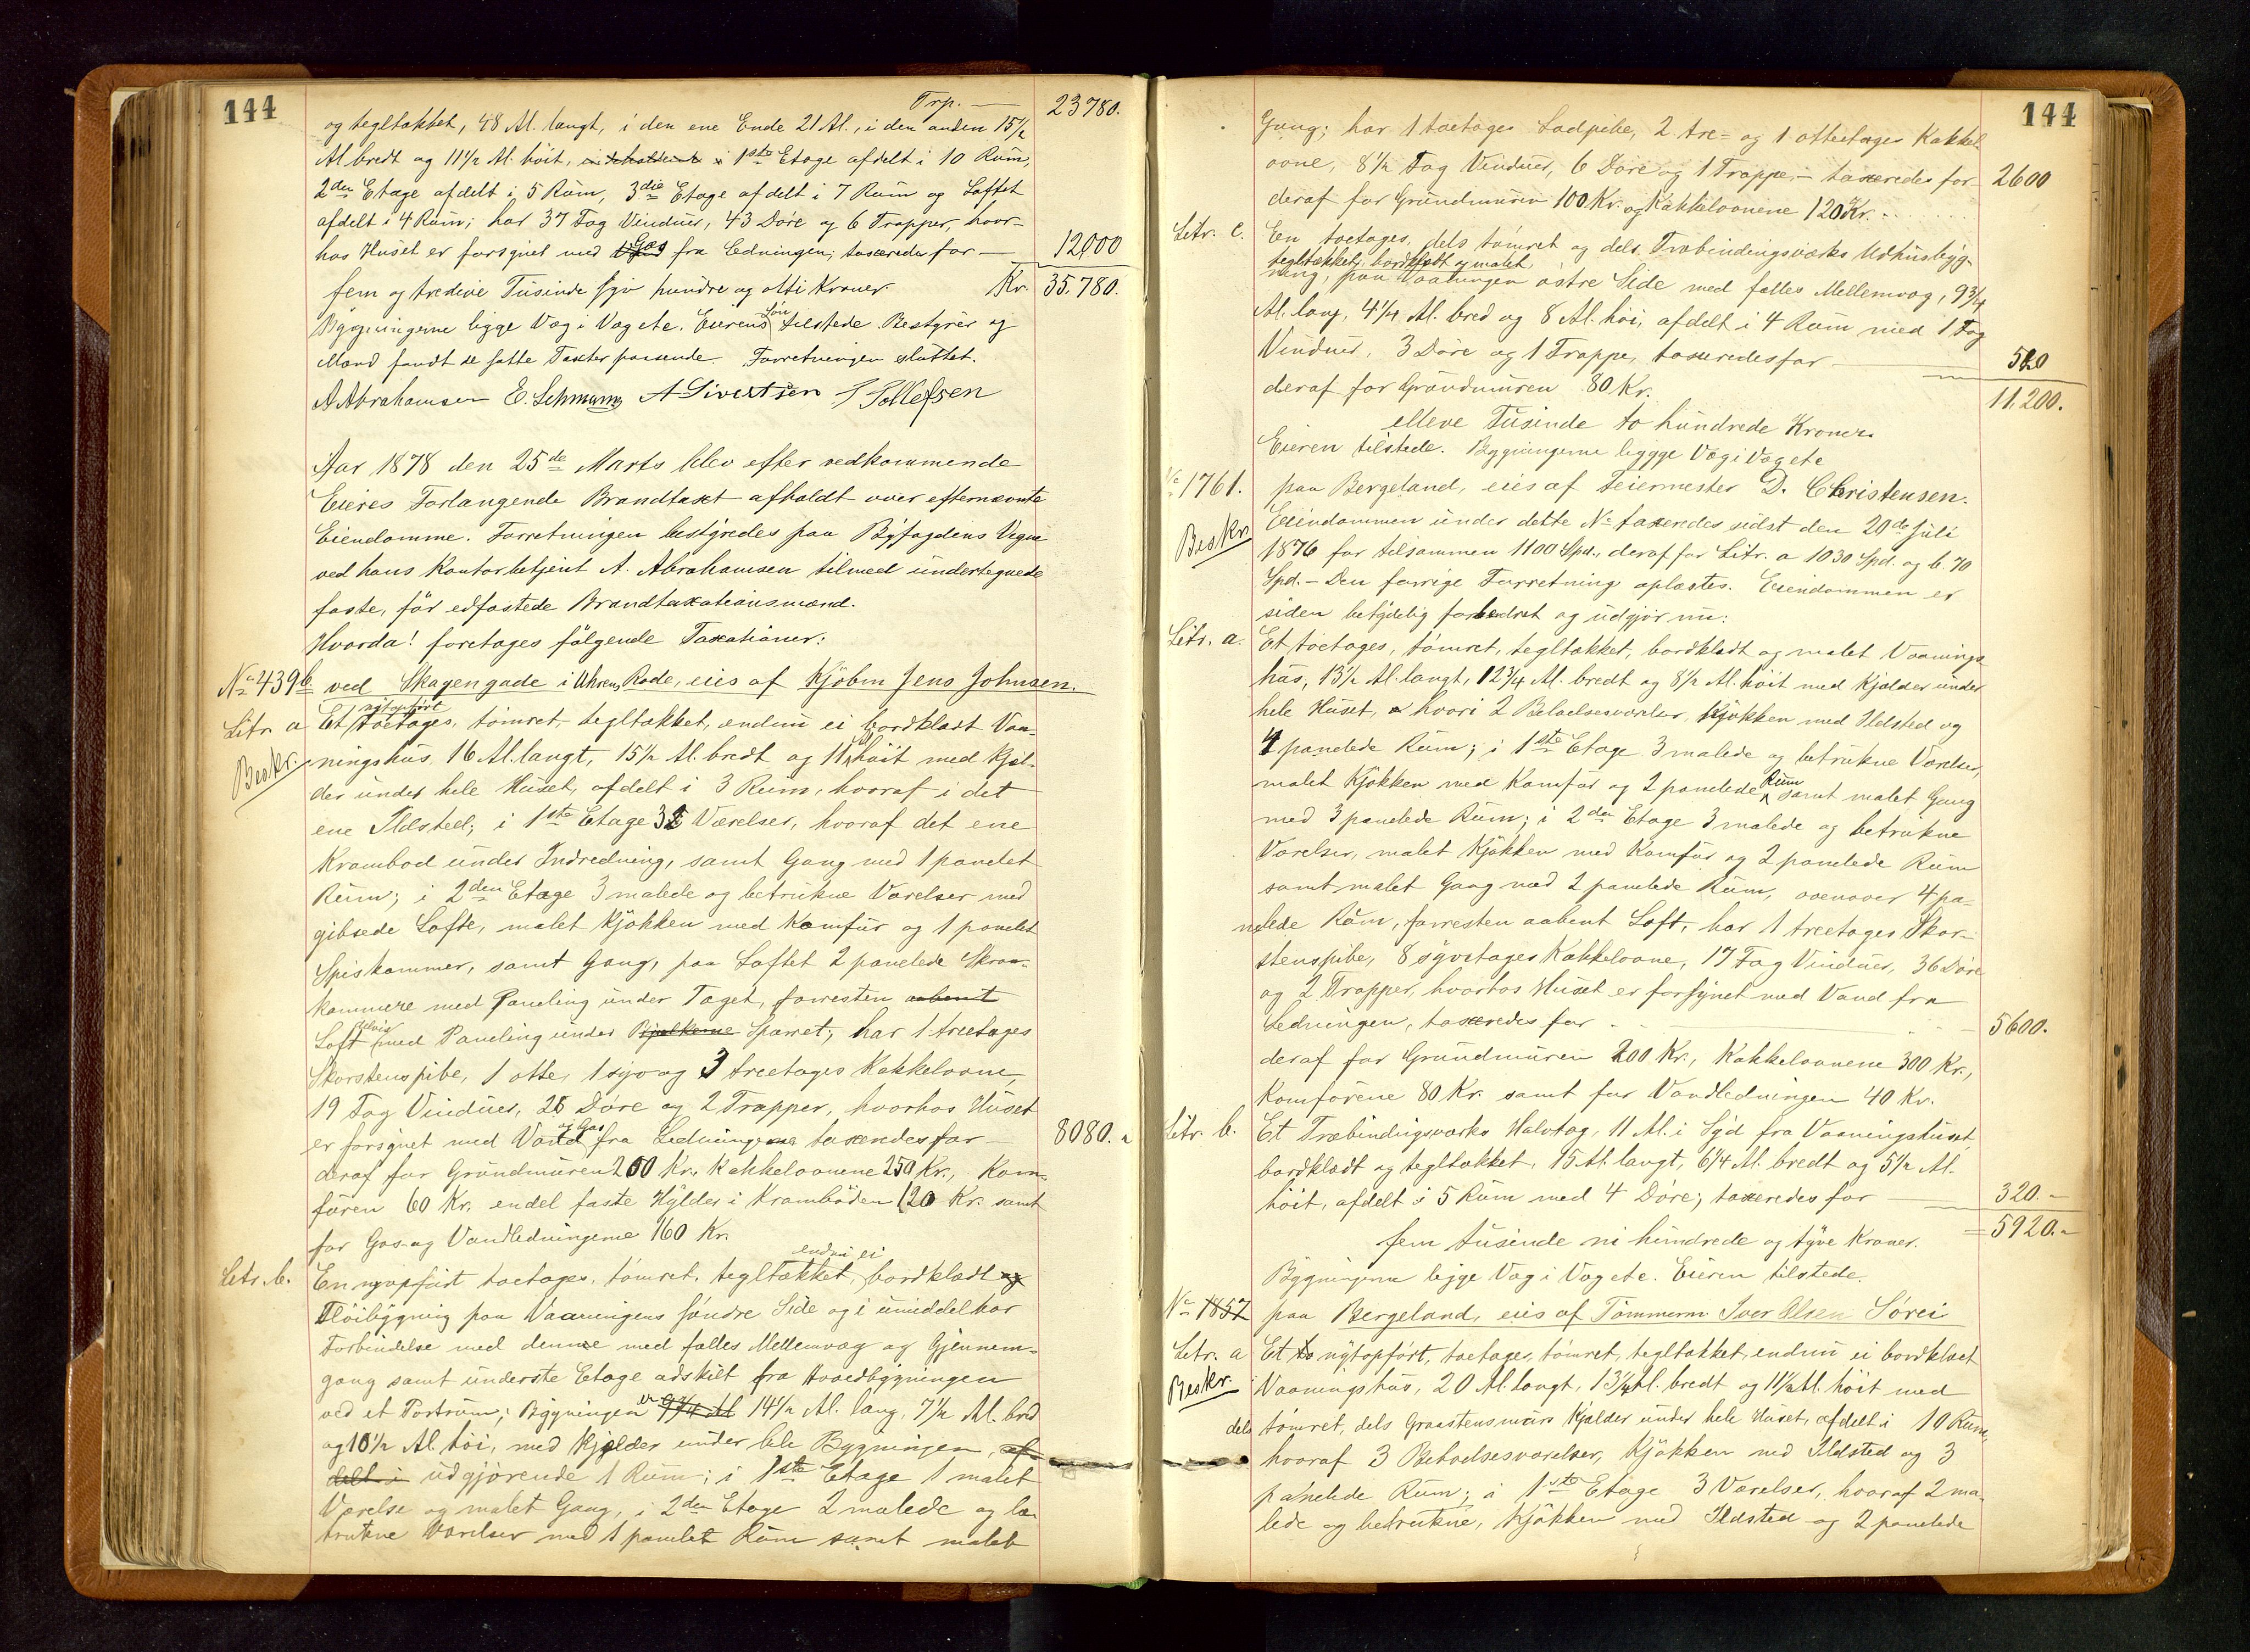 144
Trp. — 23780.
og tegltækket, 48 Al. langt, i den ene Ende 21 Al., i den anden 15 1/2
Al. bredt og 11 1/2 Al. høit, indeholdende i 1ste Etage afdelt i 10 Rum,
2den Etage afdelt i 5 Rum, 3die Etage afdelt i 7 Rum og Loftet
afdelt i 4 Rum; har 37 Fag Vinduer, 43 Døre og 6 Trapper, hvor-
hos Huset er forsynet med Gas fra Ledningen; taxeredes for — 12000
fem og tredive Tusinde syv hundre og otti Kroner. Kr. 35.780.
Bygningerne ligge Væg i Væg etc. Eierens Søn tilstede. Bestyrer og
Mænd fandt de satte Taxter passende. Forretningen sluttet.
A Abrahamsen E. Lehmann A Sivertsen T Tollefsen
Aar 1878 den 25de Marts blev efter vedkommende
Eieres Forlangende Brandtaxt afholdt over efternævnte
Eiendomme. Forretningen bestyredes paa Byfogdens Vegne
ved hans Kontorbetjent A. Abrahamsen tilmed undertegnede
faste, før edfæstede Brandtaxationsmænd.
Hvorda! foretages følgende Taxationer:
No 439b ved Skagengade i Uhrens Rode, eies af Kjøbm Jens Johnsen.
Litr. a Et nytopført toetages, tømret, tegltækket, endnu ei bordklædt Vaa-
Beskr. ningshus, 16 Al. langt, 15 1/2 Al. bredt og 11 Al. høit med Kjæl-
der under hele Huset, afdelt i 3 Rum, hvoraf i det
ene Ildsted; i 1ste Etage 3 Værelser, hvoraf det ene
Krambod under Indredning, samt Gang med 1 panelet
Rum; i 2den Etage 3 malede og betrukne Værelser med
gibsede Lofte, malet Kjøkken med Komfur og 1 panelet
Spiskammer, samt Gang, paa Loftet 2 panelede Skraa-
kammere med Paneling under Taget, forresten aabent
Loft delvis med Paneling under Bjælkerne Sparret; har 1 treetages
Skorstenspibe, 1 otte, 1 syv og 3 treetages Kakkelovne,
19 Fag Vinduer, 26 Døre og 2 Trapper, hvorhos Huset
er forsynet med Vand og Gas fra Ledningerne taxeredes for — 8080. "
deraf for Grundmuren 200 Kr., Kakkelovnene 250 Kr., Kom-
furen 60 Kr., endel faste Hylder i Kramboden 120 Kr. samt
for Gas- og Vandledningerne 160 Kr.
Litr. b. En nyopført toetages, tømret, tegltækket, endnu ei bordklædt og
Fløibygning paa Vaaningens søndre Side og i umiddelbar
Forbindelse med denne med fælles Mellemvæg og Gjennem-
gang samt underste Etage adskilt fra Hovedbygningen
ved et Portrum; Bygningen er 9 3/4 Al 14 1/2 Al. lang, 7 1/2 Al. bred
og 10 1/2 Al. høi, med Kjælder under hele Bygningen, af-
delt i udgjørende 1 Rum; i 1ste Etage 1 malet
Værelse og malet Gang, i 2den Etage 2 malede og be-
trukne Værelser med 1 panelet Rum samt malet
144
Gang; har 1 toetages Ladpibe, 2 tre- og 1 ottetages Kakkel-
ovne, 8 1/2 Fag Vinduer, 6 Døre og 1 Trappe, — taxeredes for — 2600
deraf for Grundmuren 100 Kr. og Kakkelovnene 120 Kr.
Litr. c. En toetages, dels tømret og dels Træbindingsværks Udhusbyg-
tegltækket, bordklædt og malet,
ning, paa Vaaningen østre Side med fælles Mellemvæg, 9 3/4
Al. lang, 4 1/4 Al. bred og 8 Al. høi, afdelt i 4 Rum med 1 Fag
Vinduer, 3 Døre og 1 Trappe, taxeredes for — 520
deraf for Grundmuren 80 Kr.
11.200.
elleve Tusinde to hundrede Kroner.
Eieren tilstede. Bygningerne ligge Væg i Væg etc
No 1761. paa Bergeland, eies af Feiermester D. Christensen.
Beskr. Eiendommen under dette No taxeredes sidst den 20de Juli
1876 for tilsammen 1100 Spd., deraf for Litr. a 1030 Spd. og b. 70
Spd. — Den forrige Forretning oplæstes. Eiendommen er
siden betydelig forbedret og udgjør nu:
Litr. a. Et toetages, tømret, tegltækket, bordklædt og malet Vaanings-
hus, 13 1/2 Al. langt, 12 3/4 Al. bredt og 8 1/2 Al. høit med Kjælder under
hele Huset, hvori 2 Beboelsesværelser, Kjøkken med Ildsted og
4 panelede Rum; i 1ste Etage 3 malede og betrukne Værelser,
malet Kjøkken med Komfur og 2 panelede Rum samt malet Gang
med 3 panelede Rum; i 2den Etage 3 malede og betrukne
Værelser, malet Kjøkken med Komfur og 2 panelede Rum
samt malet Gang med 2 panelede Rum, ovenover 4 pa-
nelede Rum, forresten aabent Loft, har 1 treetages Skor-
stenspibe, 8 syvetages Kakkelovne, 17 Fag Vinduer, 36 Døre
og 2 Trapper, hvorhos Huset er forsynet med Vand fra
Ledningen, taxeredes for — 5600.
deraf for Grundmuren 200 Kr., Kakkelovnene 300 Kr.,
Komfurene 80 Kr. samt for Vandledningen 40 Kr.
Litr. b. Et Træbindingsværks Halvtag, 11 Al. i Syd fra Vaaningshuset,
bordklædt og tegltækket, 15 Al. langt, 6 1/4 Al. bredt og 5 1/2 Al.
høit, afdelt i 5 Rum med 4 Døre; taxeredes for — 320. "
5920. "
fem tusinde ni hundrede og tyve Kroner.
Bygningerne ligge Væg i Væg etc. Eieren tilstede.
No 1857 paa Bergeland, eies af Tømmerm Iver Olsen Sørei
Litr. a Et to nytopført, toetages, tømret, tegltækket, endnu ei bordklædt
Beskr. Vaaningshus, 20 Al. langt, 13 1/4 Al. bredt og 11 1/2 Al. høit med
dels tømret, dels Graastensmurs Kjælder under hele Huset, afdelt i 10 Rum,
hvoraf 3 Beboelsesværelser, Kjøkken med Ildsted og 3
panelede Rum; i 1ste Etage 3 Værelser, hvoraf 2 ma-
lede og betrukne, Kjøkken med Ildsted og 2 panelede